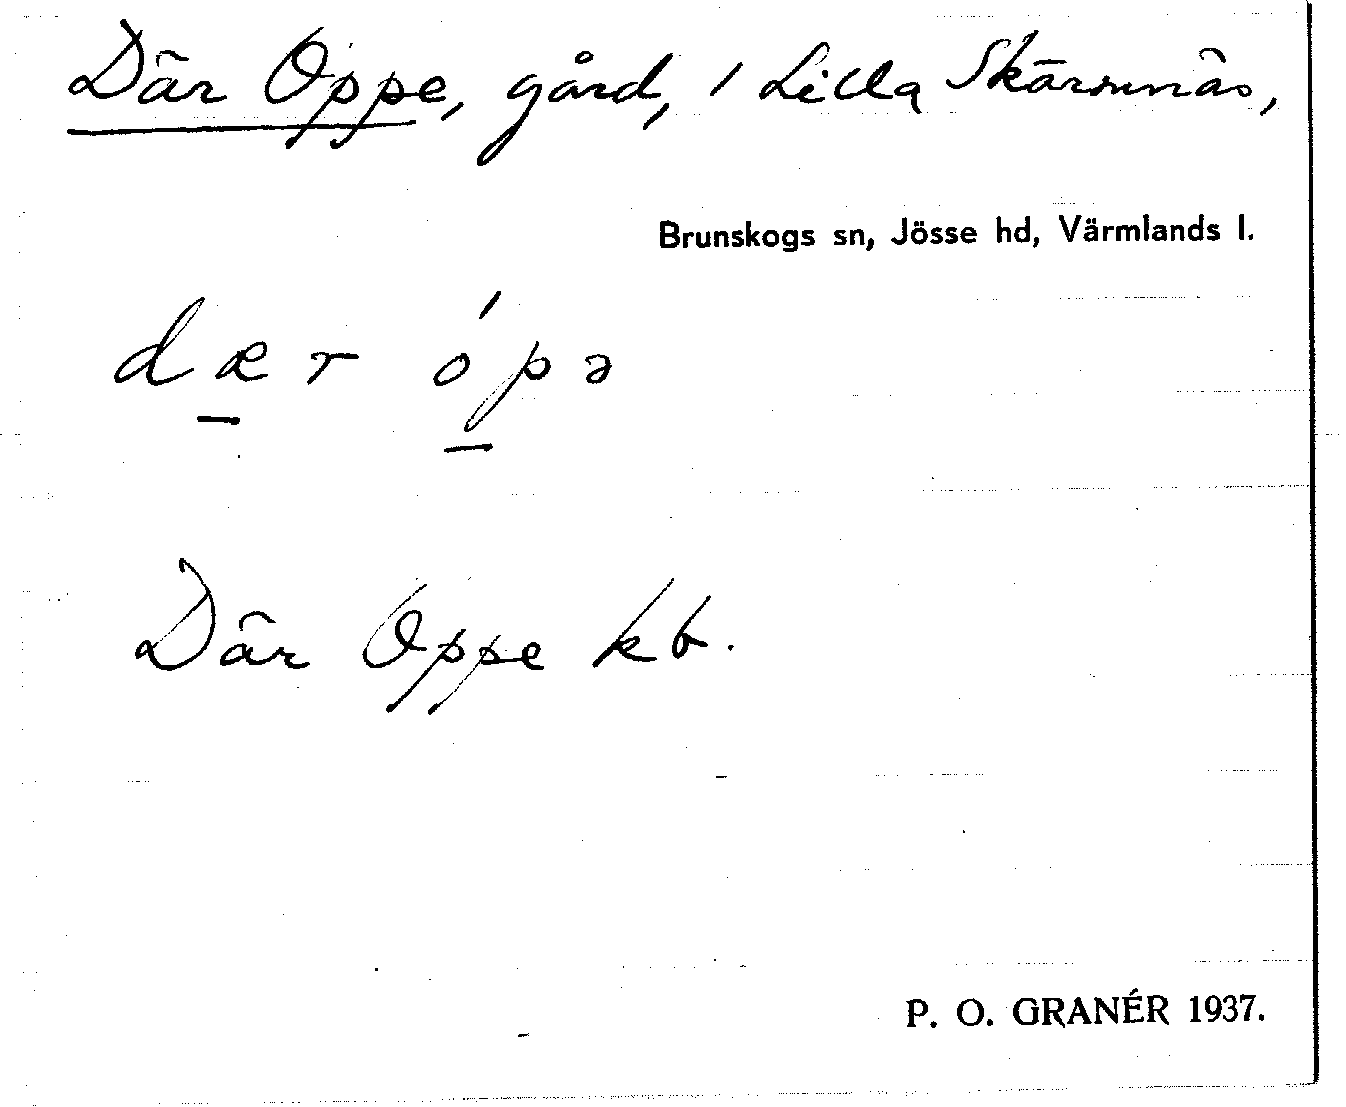 Där Oppe, gård, i Lilla Skärmnäs,
Brunskogs sn, Jösse hd, Värmlands l.
dær ópə
Där Oppe kb.
P. O. GRANÉR 1937.